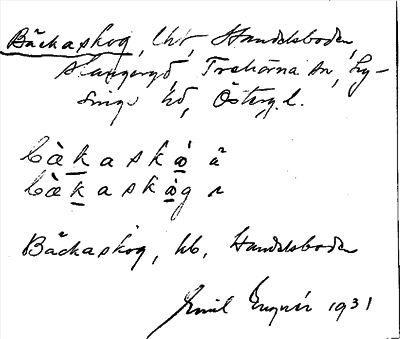 Bäckaskog, lht, Handelsboden,
Slangeryd, Trehörna sn, Ly-
singe hd, Österg.l.
bàkaskó
bàkaskóg
Bäckaskog, hb, Handelsboden
Emil 1931